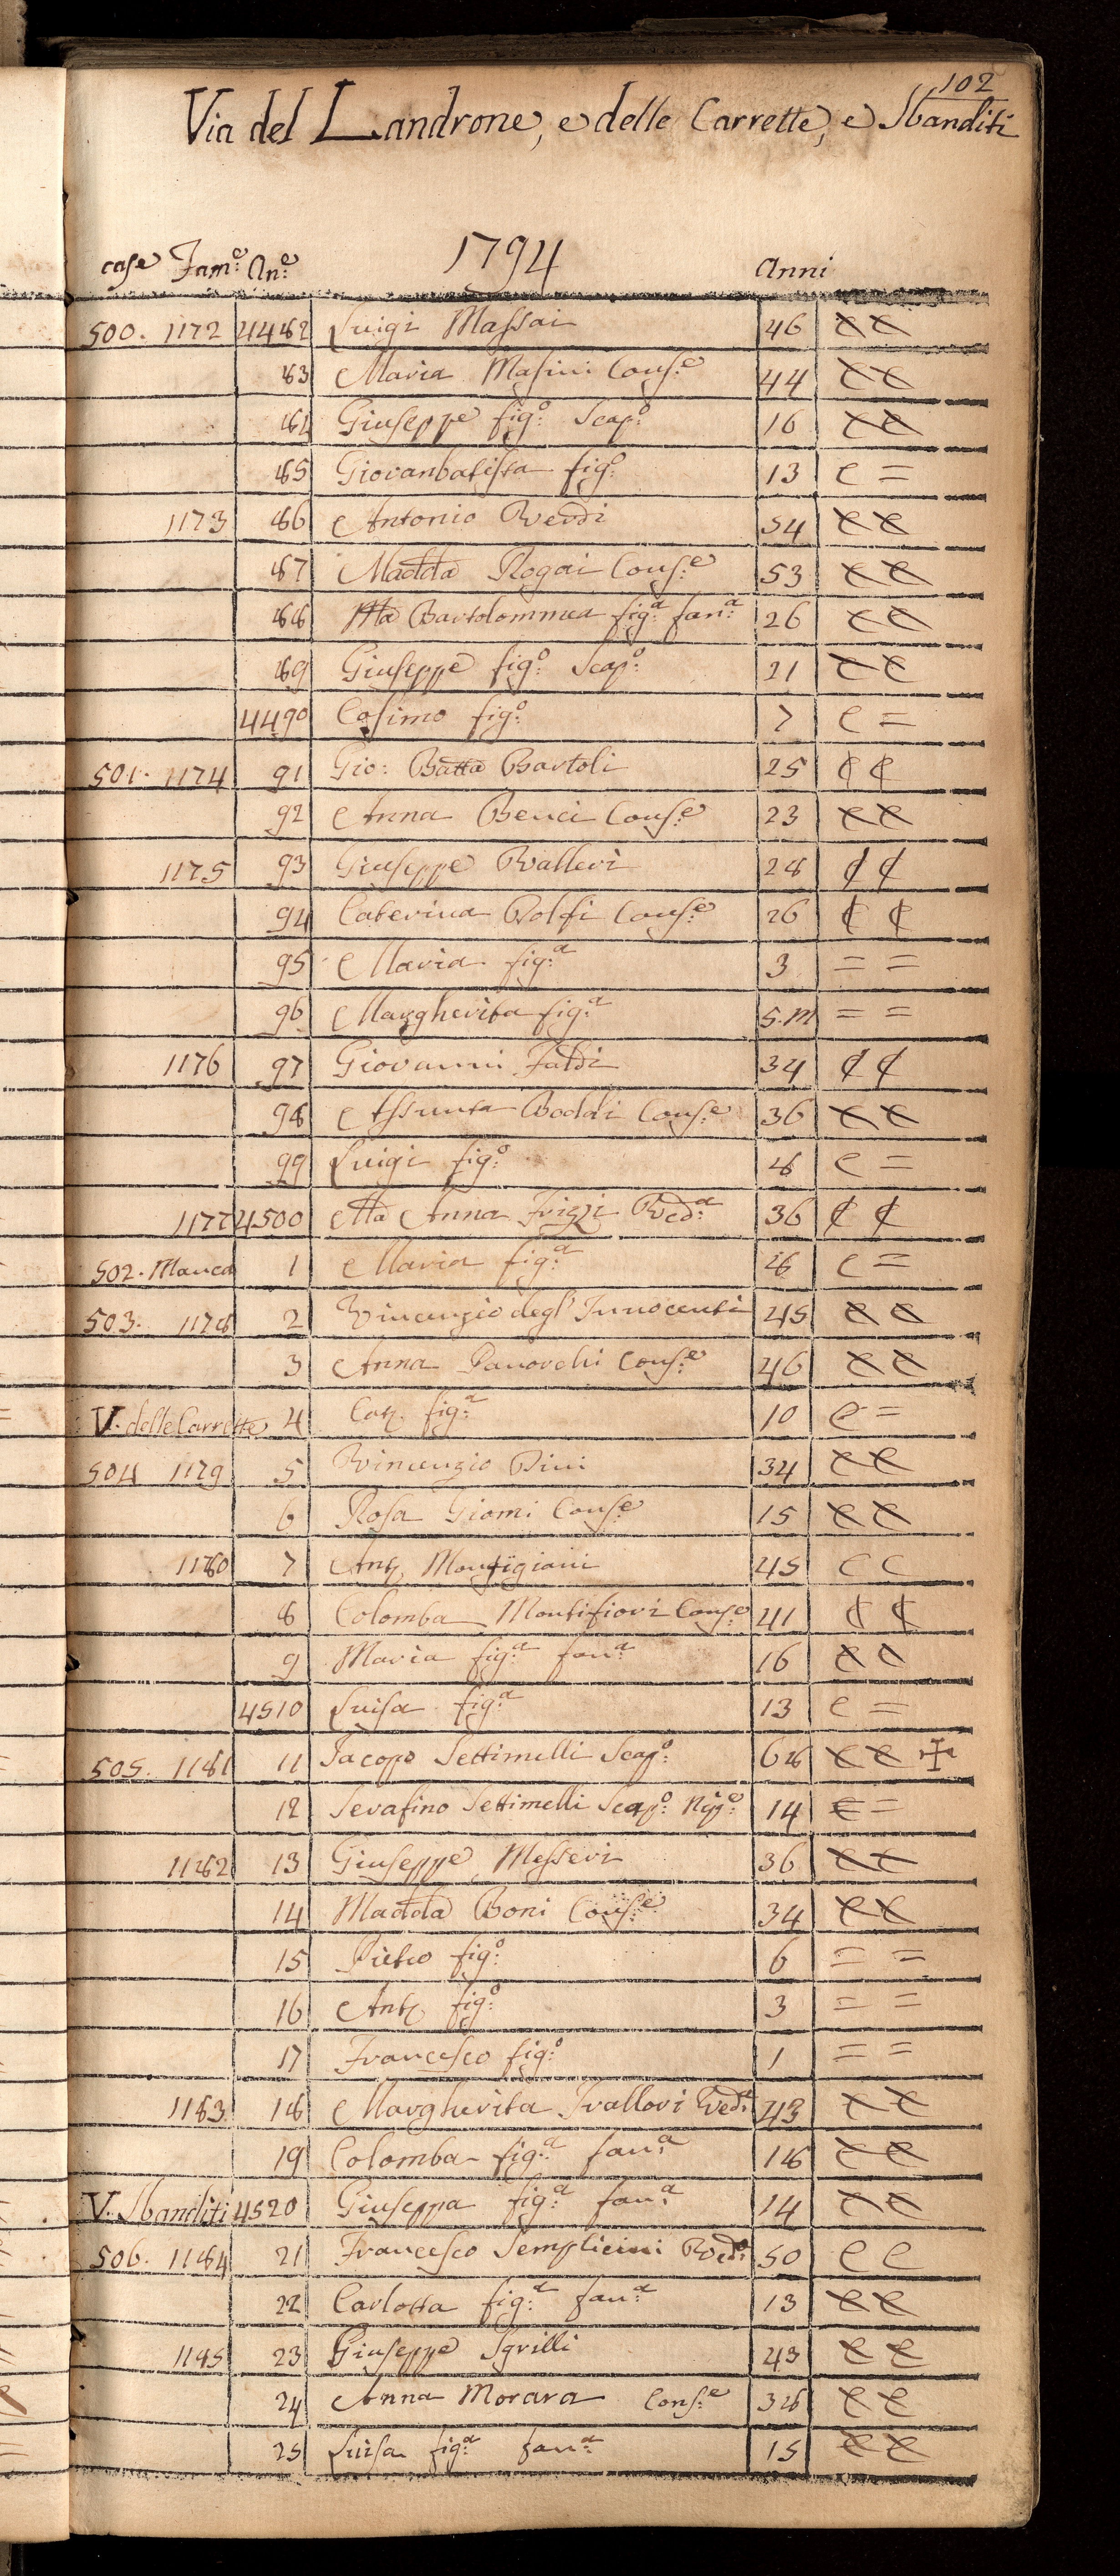 102
Via del Landrone, e delle Carrette, e Sbanditi
1794
case Fam:e An:e Anni
500. 1172 4482 Luigi Massai 46 e e
83 Maria Masini Cons:e 44 e e
84 Giuseppe fig:o Scap:o 16 e e
85 Giovanbatista fig:o 13 e =
1173 86 Antonio Verdi 54 e e
87 Madda Rogai Cons:e 53 e e
88 Ma Bartolommea fig:a fan:a 26 e e
89 Giuseppe fig:o Scap:o 21 e e
4490 Cosimo fig:o 7 e =
501. 1174 91 Gio: Batta Bartoli 25 ¢ ¢
92 Anna Benci Cons:e 23 e e
1175 93 Giuseppe Valleri 28 ¢ ¢
94 Caterina Volfi Cons:e 26 ¢ ¢
95 Maria fig:a 3 = =
96 Margherita fig:a 5.m = =
1176 97 Giovanni Faldi 34 ¢ ¢
98 Assunta Boddi Cons:e 36 e e
99 Luigi fig:o 8 e =
1177 4500 Ma Anna Frizzi Ved:a 36 ¢ ¢
502. Manca 1 Maria fig:a 8 e =
503. 1178 2 Vincenzio degl' Innocenti 45 e e
3 Anna Panorchi Cons:e 46 e e
V. delle Carrette 4 Cat. fig:a 10 e =
504 1179 5 Vincenzio Pini 34 e e
6 Rosa Giomi Cons:e 15 e e
1180 7 Ant. Montigiani 45 e e
8 Colomba Montifiori Cons:e 41 ¢ ¢
9 Maria fig:a fan:a 16 e e
4510 Luisa fig:a 13 e =
505. 1181 11 Jacopo Settimelli Scap:o 68 e e ✠
12 Serafino Settimelli Scap:o Nip:e 14 e =
1182 13 Giuseppe Messeri 36 e e
14 Madda Boni Cons:e 34 e e
15 Pietro fig:o 6 = =
16 Ant. fig:o 3 = =
17 Francesco fig:o 1 = =
1183 18 Margherita Trallori Ved:a 43 e e
19 Colomba fig:a fan:a 18 e e
V. Sbanditi 4520 Giuseppa fig:a fan:a 14 e e
506. 1184 21 Francesco Semplicini Ved:o 50 e e
22 Carlotta fig:a fan:a 13 e e
1185 23 Giuseppe Sgrilli 43 e e
24 Anna Morara Cons:e 38 e e
25 Luisa fig:a fan:a 15 e e